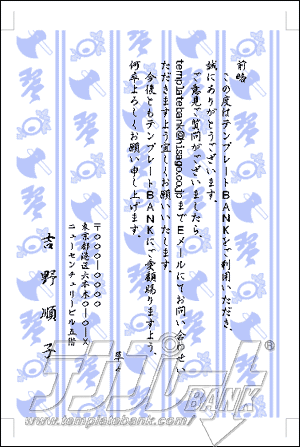 前略
この度はテンプレートBANKをご利用いただき、
誠にありがとうございます。
ご意見ご質問がございましたら、
templatebank@hisago.co.jpまでEメールにてお問い合わせい
ただきますよう宜しくお願いいたします。
今後ともテンプレートBANKにご愛顧賜りますよう、
何卒よろしくお願い申し上げます。
草々
〒〇〇〇-〇〇〇〇
東京都港区六本木〇-〇-X
ニューセンチュリービル五階
吉野順子
テンプレート BANK ®
www.templatebank.com/